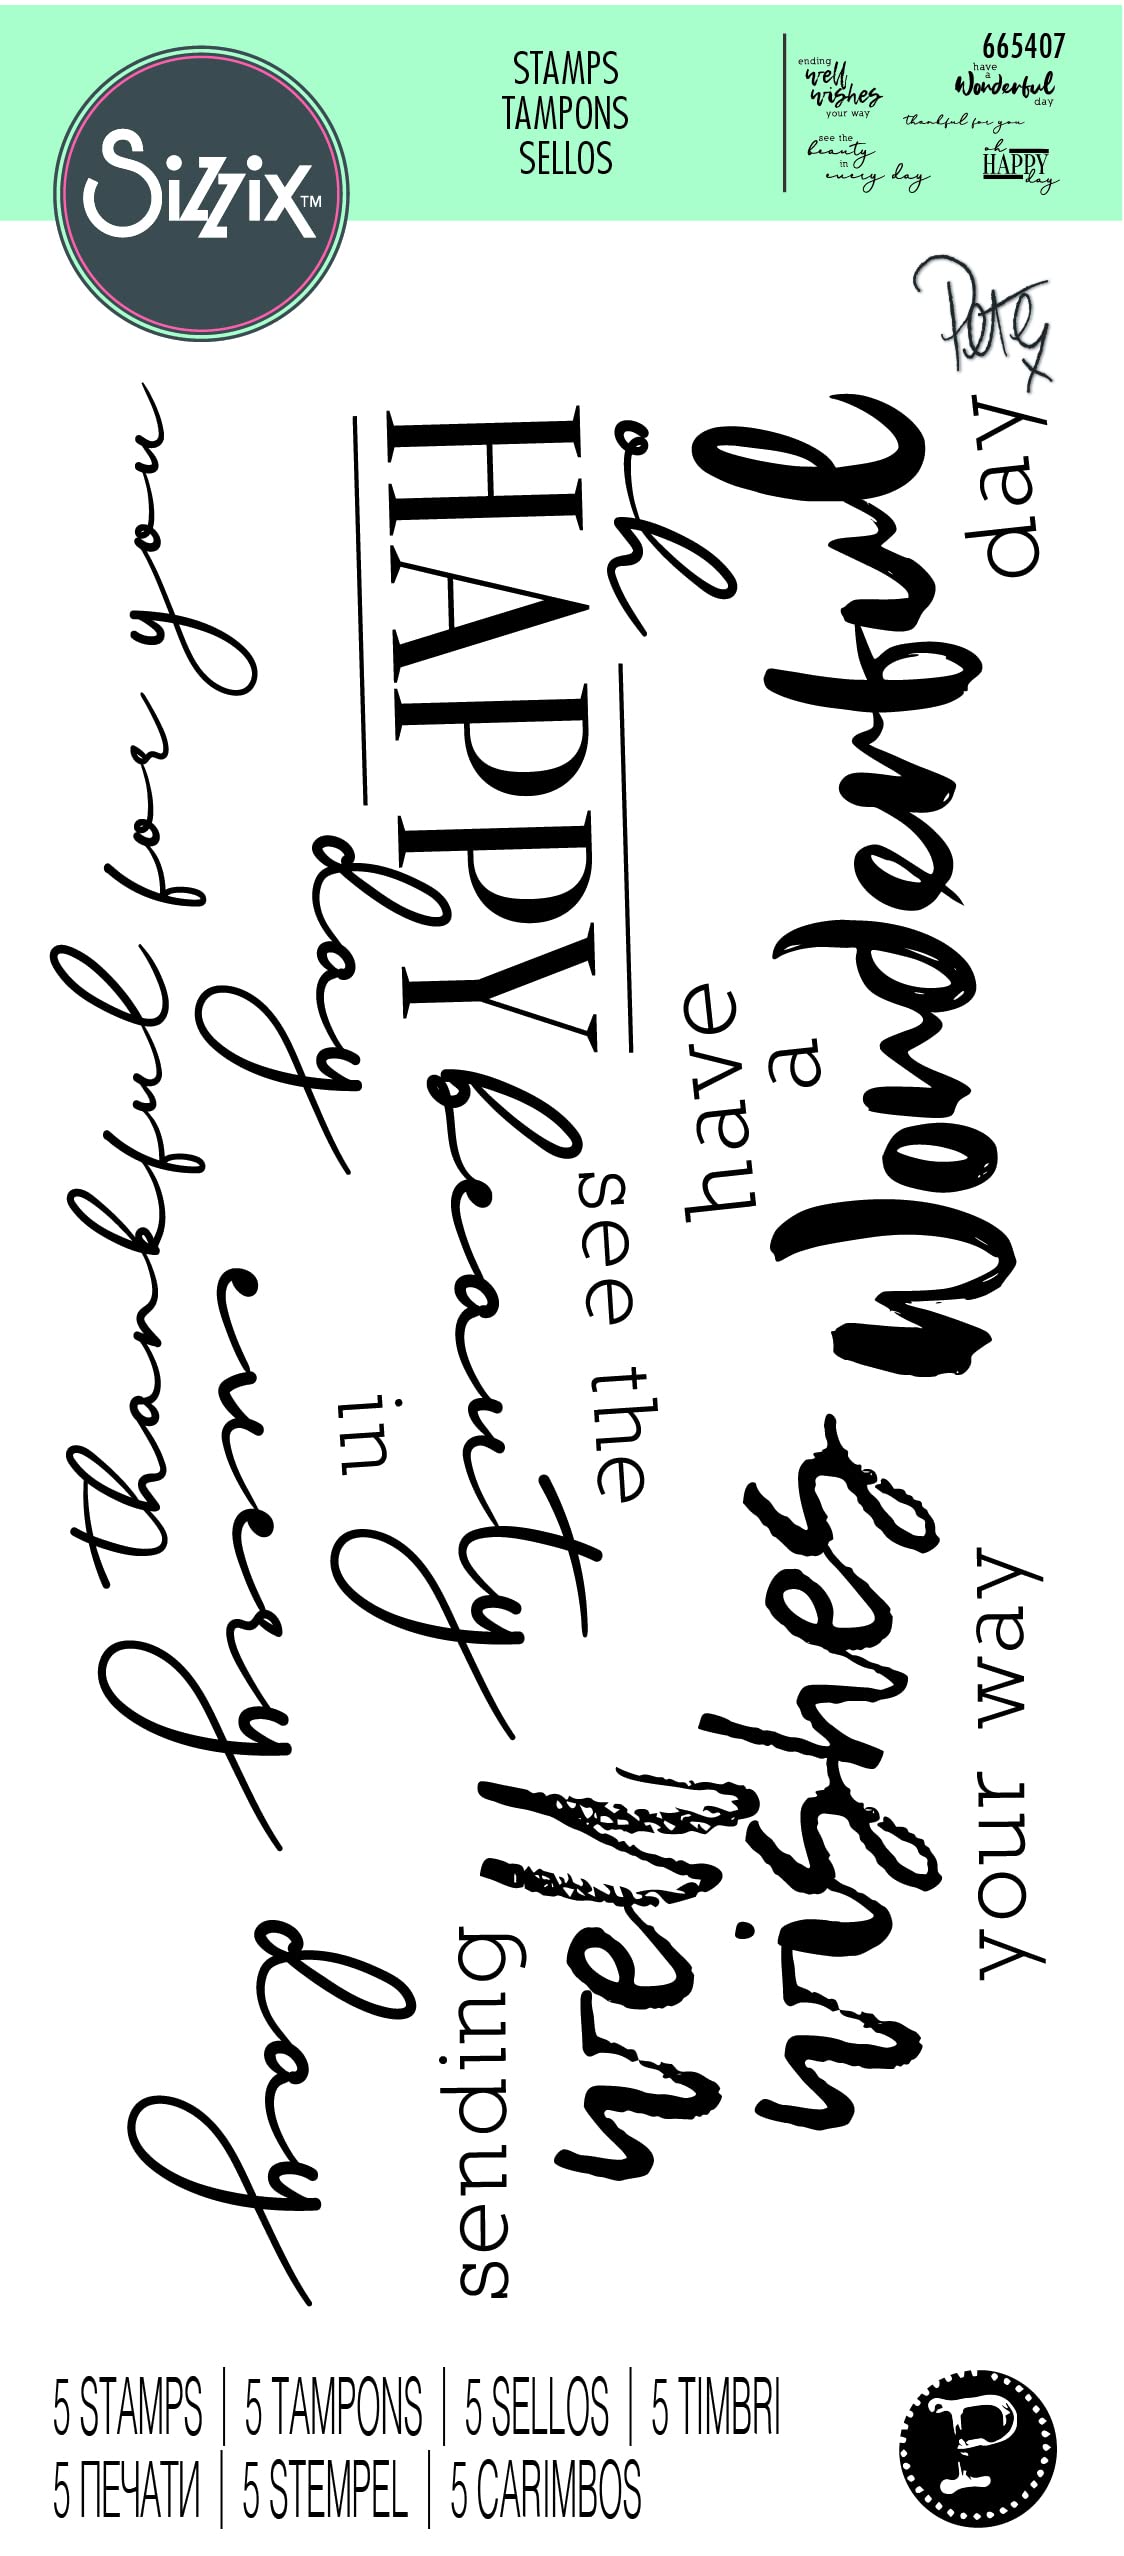 Sizzix™
STAMPS
TAMPONS
SELLOS
665407
ending
well
wishes
your way
have
a
Wonderful
day
thankful for you
see the
beauty
in
every day
oh
HAPPY
day
Petex
thankful for you
oh
HAPPY
day
have
a
Wonderful
day
see the
beauty
in
every day
sending
well
wishes
your way
5 STAMPS | 5 TAMPONS | 5 SELLOS | 5 TIMBRI
5 ПЕЧАТИ | 5 STEMPEL | 5 CARIMBOS
P